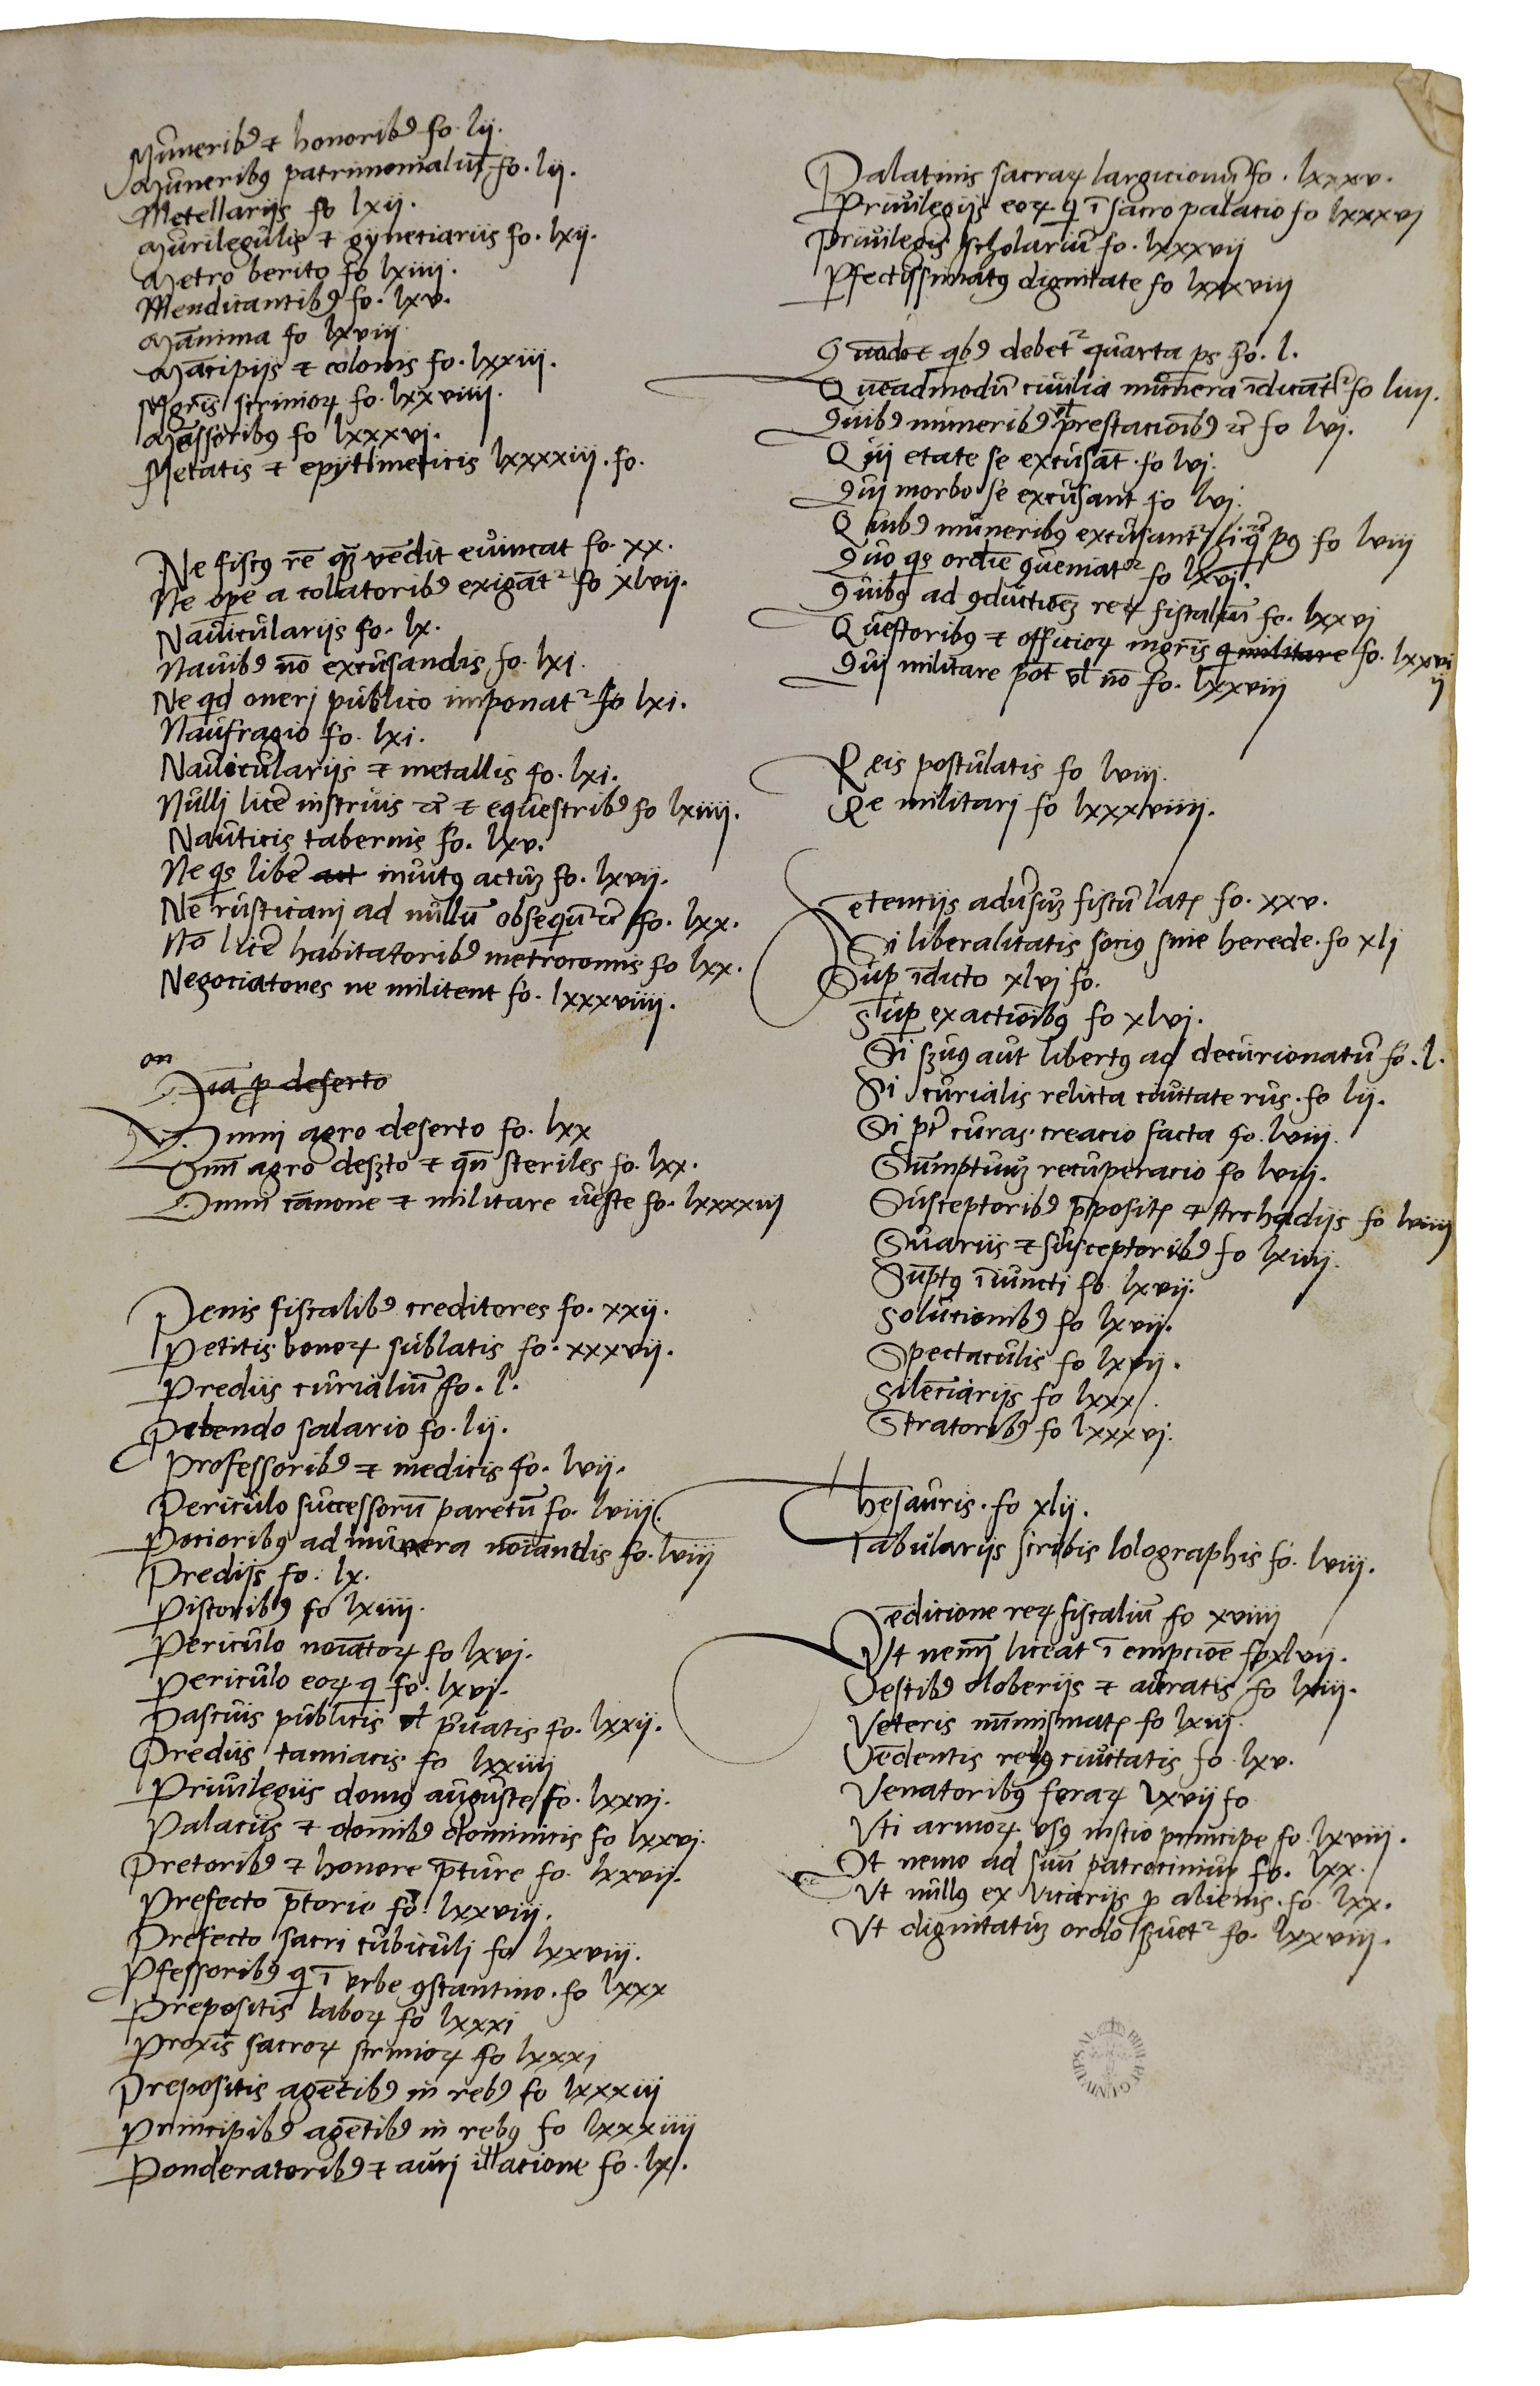 Muneribꝰ ⁊ honoribꝰ fo. lij.
Muneribꝰ patrimonialiū fo. lij.
Metellarijs fo lxij.
Murilegulis ⁊ gyneciariis fo. lxij.
Metro berito fo lxiiij.
Mendicantibꝰ fo. lxv.
Manima fo lxviij
Mācipijs ⁊ colonis fo. lxxiij.
Mgr̄is scrinioꝝ fo. lxxviiij.
Mēssoribꝰ fo lxxxvj.
Metatis ⁊ epytimeticis lxxxxiij. fo.
Ne fiscꝰ rē quā vēdit euincat fo. xx.
Ne ope a colatoribꝰ exigāt᷑ fo xlvij.
Nauiculariis fo. lx.
Nauibꝰ nō excusandis fo. lxi.
Ne qd oneri publico imponat᷑ fo lxi.
Naufragio fo. lxi.
Nauiculariis ⁊ metallis fo. lxi.
Nulli licē in frenis ⁊c̄ ⁊ equestribꝰ fo lxiiij.
Nauticis tabernis fo. lxv.
Ne qs libē act inuitꝰ actuꝫ fo. lxvij.
Ne rusticani ad nullū obsequiū ⁊c̄ fo. lxx.
Nō licē habitatoribꝰ metrocomis fo lxx.
Negociatores ne militent fo. lxxxviiij.
on
ia ꝓ deserto
Omni agro deserto fo. lxx
Omī agro desꝫto ⁊ qn̄ steriles fo. lxx.
Omni canone ⁊ militare ueste fo. lxxxxiij
Penis fiscalibꝰ creditores fo. xxij.
Petitis bonoꝝ sublatis fo. xxxvij.
Prediis curialiū fo. l.
Prebendo salario fo. lij.
Professoribꝰ ⁊ medicis fo. lvij.
Periculo successorū parētū fo. lviij.
Pocioribꝰ ad munera noīandis fo. lviij
Predijs fo. lx.
Pistoribꝰ fo lxiiij.
Periculo noīatoꝝ fo lxvj.
Periculo eoꝝ q fo. lxvj.
Pascuis publicis vł p̄uatis fo. lxxij.
Prediis tamiacis fo lxxiiij
Priuilegiis domꝰ auguste fo. lxxvj.
Palaciis ⁊ domibꝰ dominicis fo lxxvj.
Pretoribꝰ ⁊ honore p̄ture fo. lxxvij.
Prefecto p̄torio fo. lxxviij.
Prefecto sacri cubiculi fo lxxviij.
Pfessoribꝰ q ī vrbe ꝯstantino. fo lxxx
Prepositis laboꝝ fo lxxxi
Proxīs sacroꝝ scrinioꝝ fo lxxxi
Prepositis agētibꝰ in rebꝰ fo lxxxiij
Principibꝰ agētibꝰ in rebꝰ fo lxxxiiij
Ponderatoribꝰ ⁊ auri illatione fo. lx.
Palatinis sacraꝝ largicionū fo. lxxxv.
Priuilegiis eoꝝ q ī sacro palacio fo lxxxvj
Priuilegiis scholariū fo. lxxxvij
Pfectissimatꝰ dignitate fo lxxxviij
Quādo ⁊ qbꝰ debet᷑ quarta ps fo. l.
Queadmodū ciuilia munera īdicāt᷑ fo liiij.
Quibꝰ muneribꝰ vł prestacioībꝰ ⁊c̄ fo lvj.
Qui etate se excusāt. fo lvj.
Qui morbo se excusant fo lvj.
Quibꝰ muneribꝰ excusant᷑ fo lviij
Quo qs ordīe ꝯueniat᷑ fo lxvj.
Quibꝰ ad ꝯductioeꝫ reꝝ fiscaliū fo. lxxvj
Questoribꝰ ⁊ officioꝝ mgr̄is q militare fo. lxxvi
ij
Qui militare pot vł nō fo. lxxviij
Reis postulatis fo lviij.
Re militari fo lxxxviiij.
etenciis aduersuꝫ fiscū latꝭ fo. xxv.
Si liberalitatis socius sine herede. fo xlj
Sup īdicto xlvj fo.
Sup exactioībus fo xlvj.
Si sꝫuꝰ aut libertꝰ ad decurionatū fo. l.
Si curialis relicta ciuitate rus. fo lij.
Si pt᷑ curas. creacio facta fo. lviij.
Sumptuuꝫ recuperacio fo lviij.
Susceptoribꝰ p̄positꝭ ⁊ archadiis fo lviiij
Suariis ⁊ susceptoribꝰ fo lxiiij.
Sūptꝰ īiuncti fo. lxvij.
Solucionibꝰ fo lxvij.
Spectaculis fo lxvij.
Silēciariis fo lxxx.
Stratoribꝰ fo lxxxvj.
Thesauris. fo xlij.
Tabulariis scribis lolographis fo. lviij.
Vēdicione reꝝ fiscaliū fo xviiij
Vt nemī liceat ī empcioe fo xlvij.
Vestibꝰ oloberiis ⁊ auratis fo lxiij.
Veteris numismatꝭ fo lxiij.
Vēdentis rebꝰ ciuitatis fo. lxv.
Venatoribꝰ feraꝝ lxvij fo
Vti armoꝝ vsꝰ inscio principe fo. lxviij.
Vt nemo ad suū patrociniuꝫ fo. lxx.
Vt nullꝰ ex vicariis ꝓ alienis. fo. lxx.
Vt dignitatuꝫ ordo fo. lxxviij.